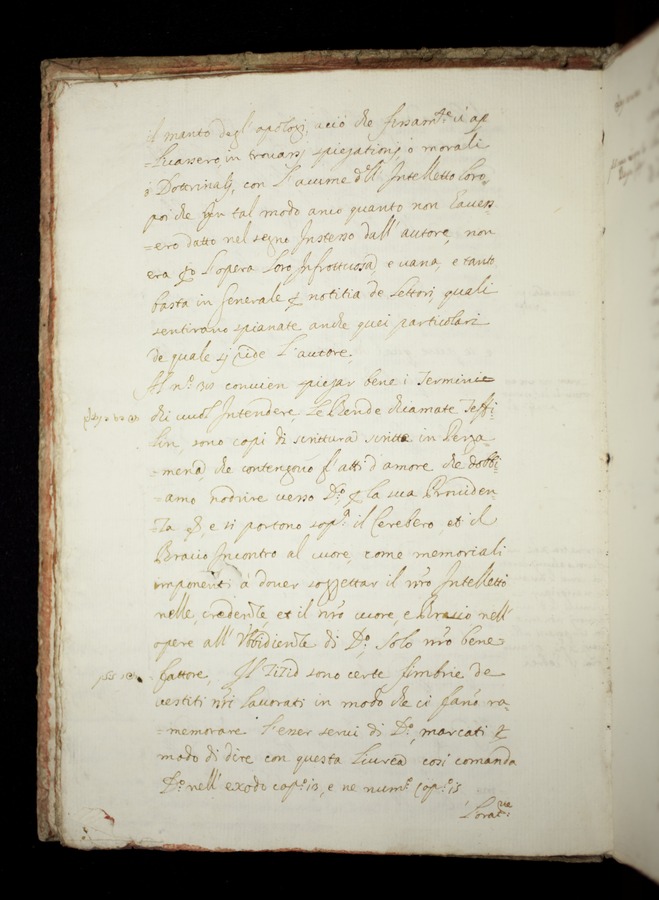 il manto degl' apologi, acciò che fissam.te si ap
=plicassero, in trovarsj spiegationj ò morali
ò Dottrinalj, con l'acume d'll' Intelletto loro,
poi che per tal modo anco quanto non havess
=ero datto nel segno Instesso dall' autore, non
era però l'opera loro Infrottuosa, e vana, e tanto
basta in generale per notitia de lettori, quali
sentirano spianate anche quei particolari
de quale si vide l'autore.
Al n.o convien spiegar bene i Terminj
chi vuol Intendere, le Bende chiamate Teffi
lin, sono copi di scrittura scritte in Perga
=mena, che contengono l'atti d'amore che dobbi
=amo nodrire verso D.o, per la sua Providen
=za, e si portono sop.a il Cerebero, et il
Bracio Incontro al cuore, come memoriali
imponenti à dover soggettar il nro Intelletto
nelle credenze, et il nro cuore, e Bracio nell'
opere all' Vbbidienze di D.o, solo nro bene
fattore, Il Zizid sono certe fimbrie de
vestiti nri lavorati in modo che ci fano ra
=memorare l'esser servi di D.o, marcati per
modo di dire con questa livrea così comanda
D.o nell' exodo cap.o 13, e ne num.i Cap.o 15